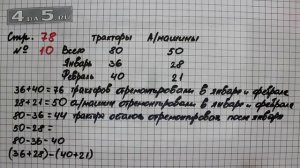 4ДА5.RU
Стр. 78 тракторы А/машины
№ 10 Всего 80 50
Январь 36 28
Февраль 40 21
36+40=76 тракторов отремонтировали в январе и феврале
28+21=50 а/машин отремонтировали в январе и феврале
80-36=44 трактора осталось отремонтировать после января
50-28=
80-36-40
(36+28)-(40+21)